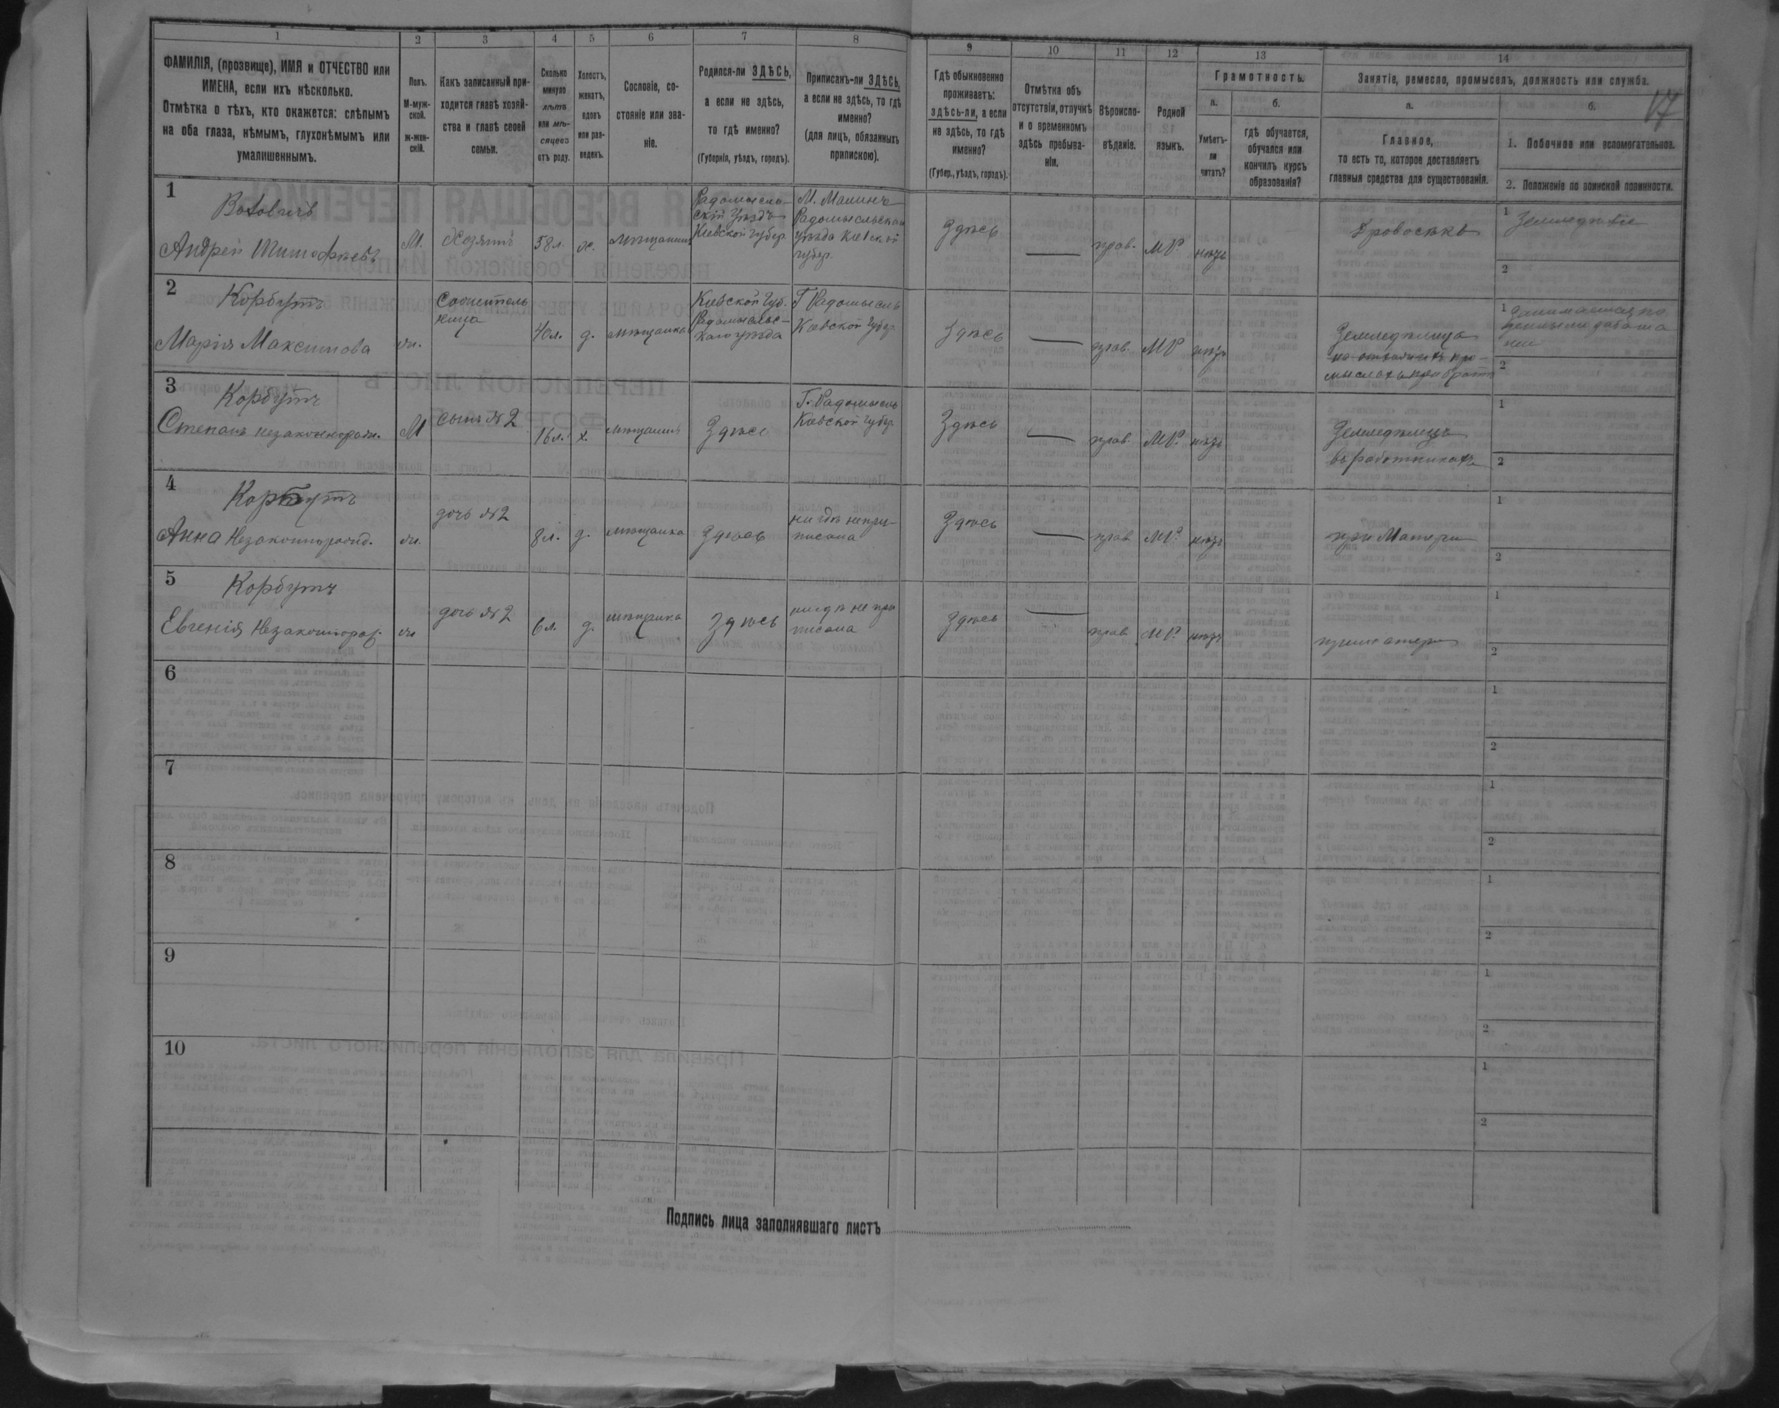 1 2 3 4 5 6 7 8 9 10 11 12 13 14
17
ФАМИЛІЯ, (прозвище), ИМЯ и ОТЧЕСТВО или
ИМЕНА, если ихъ нѣсколько.
Отмѣтка о тѣхъ, кто окажется: слѣпымъ
на оба глаза, нѣмымъ, глухонѣмымъ или
умалишеннымъ.
Полъ.
М-муж-
ской.
ж-жен-
скій.
Какъ записанный при-
ходится главѣ хозяй-
ства и главѣ своей
семьи.
Сколько
минуло
лѣтъ
или мѣ-
сяцевъ
отъ роду.
Холостъ,
женатъ,
вдовъ
или раз-
веденъ.
Сословіе, со-
стояніе или зва-
ніе.
Родился-ли ЗДѢСЬ,
а если не здѣсь,
то гдѣ именно?
(Губернія, уѣздъ, городъ).
Приписанъ-ли ЗДѢСЬ,
а если не здѣсь, то гдѣ
именно?
(для лицъ, обязанныхъ
припискою).
Гдѣ обыкновенно
проживаетъ:
здѣсь-ли, а если
не здѣсь, то гдѣ
именно?
(Губер., уѣздъ, городъ).
Отмѣтка объ
отсутствіи, отлучкѣ
и о временномъ
здѣсь пребыва-
ніи.
Вѣроиспо-
вѣданіе.
Родной
языкъ.
Грамотность.
а.
Умѣетъ-
ли
читать?
б.
гдѣ обучается,
обучался или
кончилъ курсъ
образованія?
Занятіе, ремесло, промыселъ, должность или служба.
а.
Главное,
то есть то, которое доставляетъ
главныя средства для существованія.
б.
1. Побочное или вспомогательное.
2. Положеніе по воинской повинности.
1
Андрей Тимофеевъ
М.
Хозяинъ
58 л.
ж.
мѣщанинъ
Радомысль-
скій Уѣздъ
Кіевской губер.
М. Малинъ
Радомысльскаго
уѣзда Кіевской
губер.
Здѣсь
прав.
МР.
нѣтъ
1 Земледѣліе
2
2
Корбутъ
Марія Максимова
ж.
Сожитель
ница
40 л.
д.
мѣщанка
Кіевской Губ.
Радомысльс-
каго уѣзда
Г. Радомысль
Кіевской Губер.
Здѣсь
прав.
МР.
нѣтъ
Земледѣлица
1
2
3
Корбутъ
Степанъ незаконнорожд.
М
сынъ №2
16 л.
х.
мѣщанинъ
Здѣсь
Г. Радомысль
Кіевской Губер.
Здѣсь
прав.
МР.
нѣтъ
Земледѣлецъ
въ работникахъ
1
2
4
Корбутъ
Анна Незаконнорожд.
ж.
дочь №2
8 л.
д.
мѣщанка
Здѣсь
нигдѣ непри-
писана
Здѣсь
прав.
МР.
нѣтъ
при Матери
1
2
5
Корбутъ
Евгенія Незаконнорож.
ж
дочь №2
6 л.
д.
мѣщанка
Здѣсь
нигдѣ не при
писана
Здѣсь
прав.
МР.
нѣтъ
при матери
1
2
6
1
2
7
1
2
8
1
2
9
1
2
10
1
2
Подпись лица заполнявшаго листъ